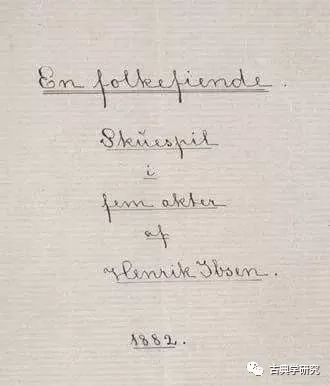 En folkefiende.
Skuespil
i
fem akter
af
Henrik Ibsen.
1882.
古典学研究